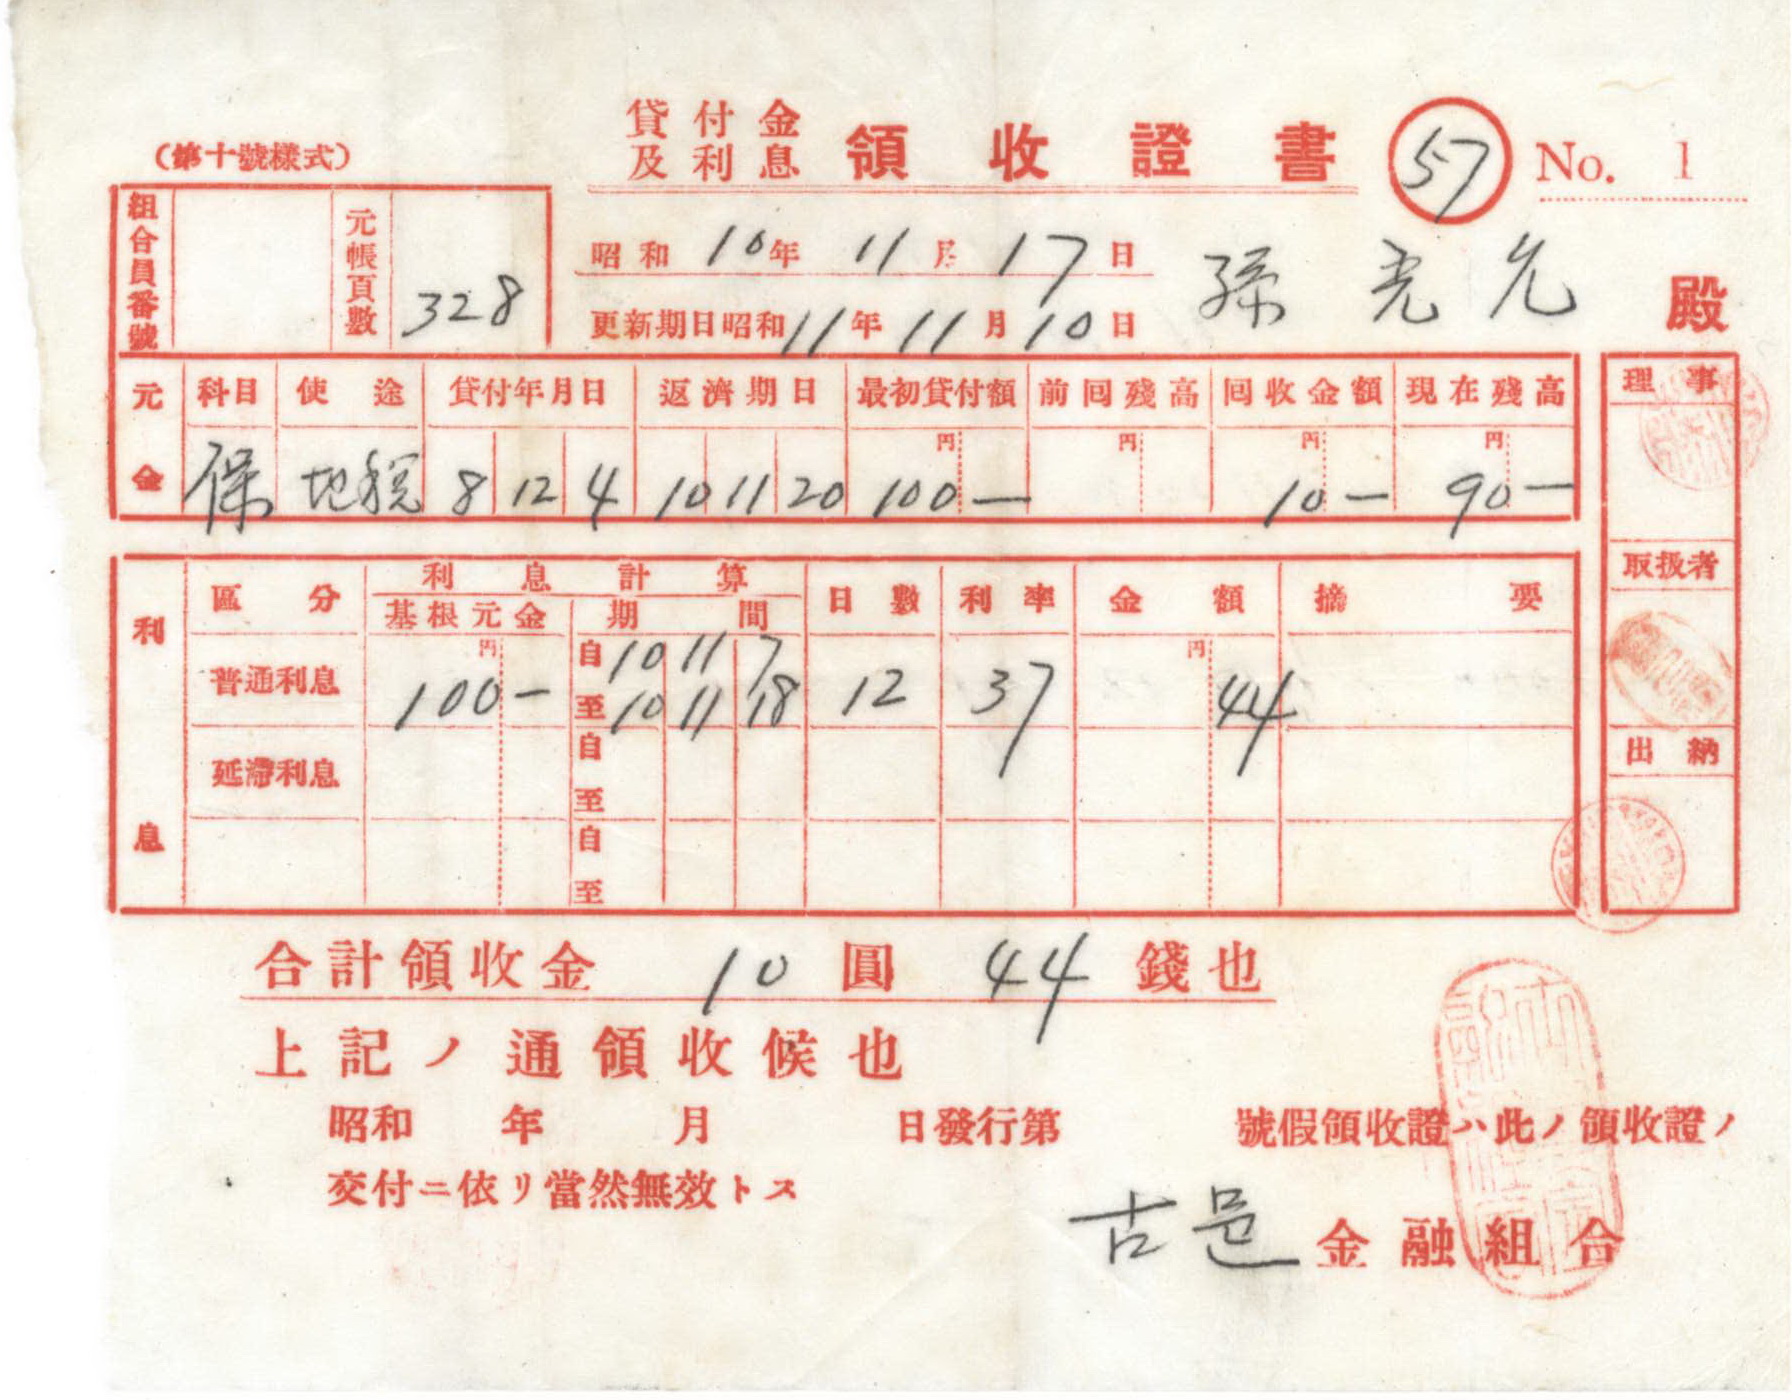 (第十號樣式)
貸付金及利息 領收證書 57 No. 1
組合員番號 元帳頁數 328
昭和 10年 11月 17日
更新期日昭和11年11月10日
孫 光 允 殿
元金 科目 使途 貸付年月日 返濟期日 最初貸付額 前回殘高 回收金額 現在殘高
円 円 円 円
保 地稅 8 12 4 10 11 20 100 — 10 — 90 —
理事
取扱者
出納
利息 區分 利息計算 日數 利率 金額 摘要
基根元金 期間
円 円
普通利息 100 — 自 10 11 7 12 37 44
至 10 11 18
延滯利息 自
至
自
至
合計領收金 10 圓 44 錢也
上記ノ通領收候也
昭和 年 月 日發行第 號假領收證ハ此ノ領收證ノ
交付ニ依リ當然無效トス
古邑 金融組合